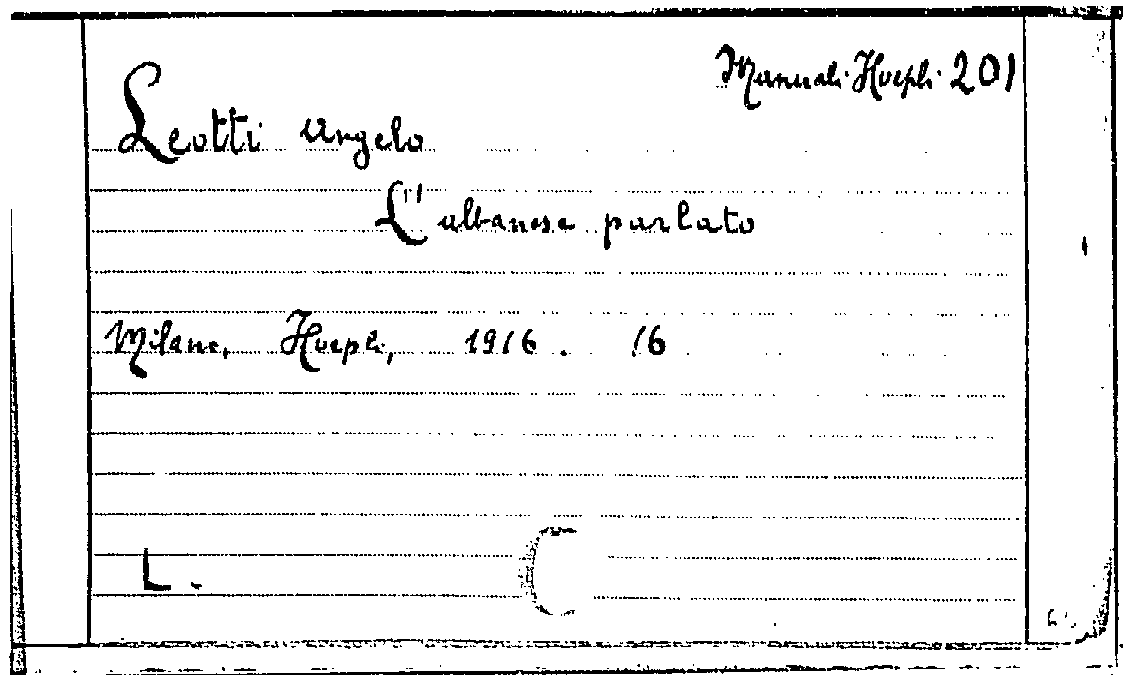 Manuali Hoepli 201
Leotti Angelo
L'albanese parlato
Milano, Hoepli, 1916. 16
L.